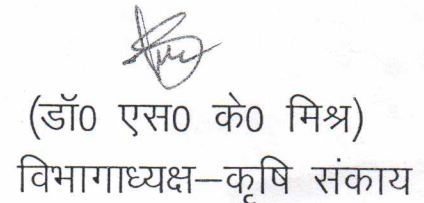 (डॉ0 एस0 के0 मिश्र)
विभागाध्यक्ष–कृषि संकाय